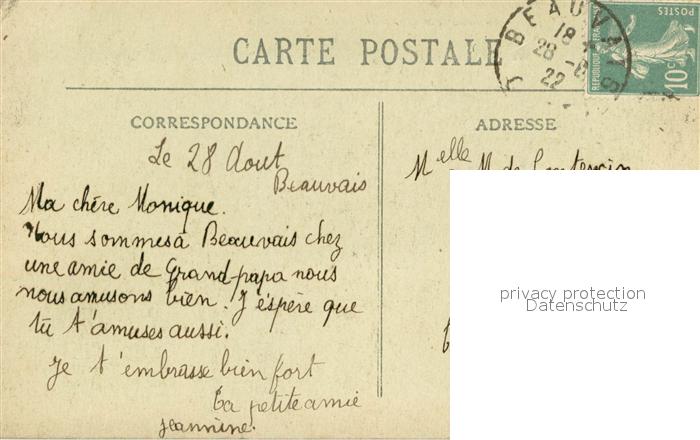 CARTE POSTALE
BEAUVAIS
18
28 -8
22
POSTES
REPUBLIQUE FRANCAISE
10c
CORRESPONDANCE
ADRESSE
Le 28 Aout
Beauvais
Ma chère Monique.
Nous sommes à Beauvais chez
une amie de Grand-papa nous
nous amusons bien. J'éspère que
tu t'amuses aussi.
Je t'embrasse bien fort
ta petite amie
Jeannine.
Melle M de
privacy protection
Datenschutz